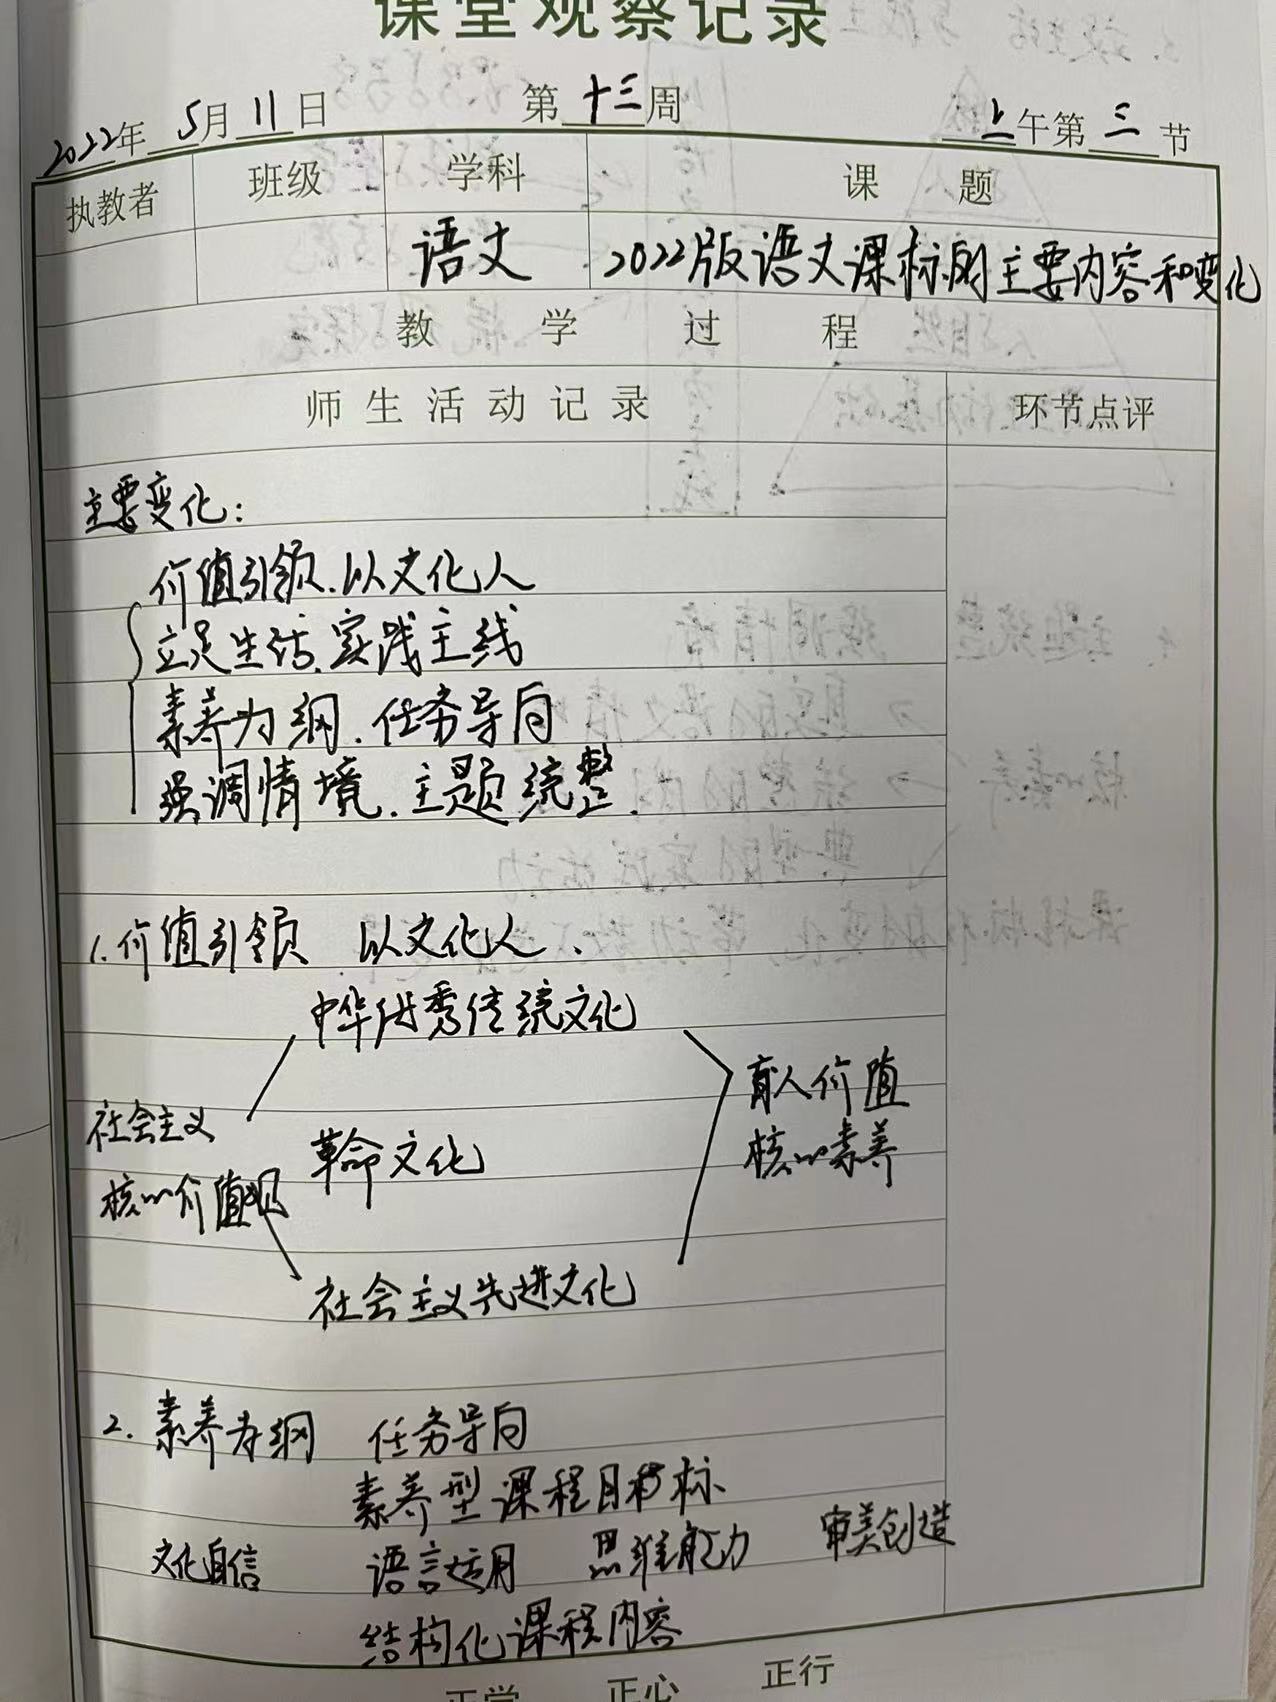 课堂观察记录
2022年 5月 11日 第 十三 周 上午第 三 节
执教者 班级 学科 课题
语文 2022版语文课标的主要内容和变化
教学过程
师生活动记录 环节点评
主要变化:
价值引领.以文化人
立足生活.实践主线
素养为纲.任务导向
强调情境.主题统整.
1.价值引领 以文化人.
中华优秀传统文化
育人价值
社会主义
革命文化
核心素养
核心价值观
社会主义先进文化
2.素养为纲 任务导向
素养型课程目标
文化自信 语言运用 思维能力 审美创造
结构化课程内容
正学 正心 正行